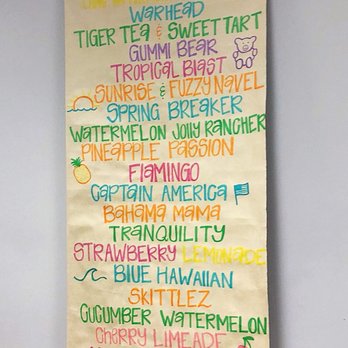 WARHEAD
TIGER TEA & SWEETTART
GUMMI BEAR
TROPICAL BLAST
SUNRISE & FUZZY NAVEL
SPRING BREAKER
WATERMELON JOLLY RANCHER
PINEAPPLE PASSION
FLAMINGO
CAPTAIN AMERICA
BAHAMA MAMA
TRANQUILITY
STRAWBERRY LEMONADE
BLUE HAWAIIAN
SKITTLEZ
CUCUMBER WATERMELON
CHERRY LIMEADE